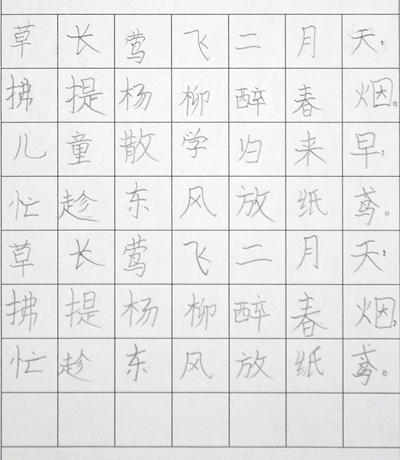 草长莺飞二月天，
拂提杨柳醉春烟。
儿童散学归来早，
忙趁东风放纸鸢。
草长莺飞二月天，
拂提杨柳醉春烟，
忙趁东风放纸鸢。